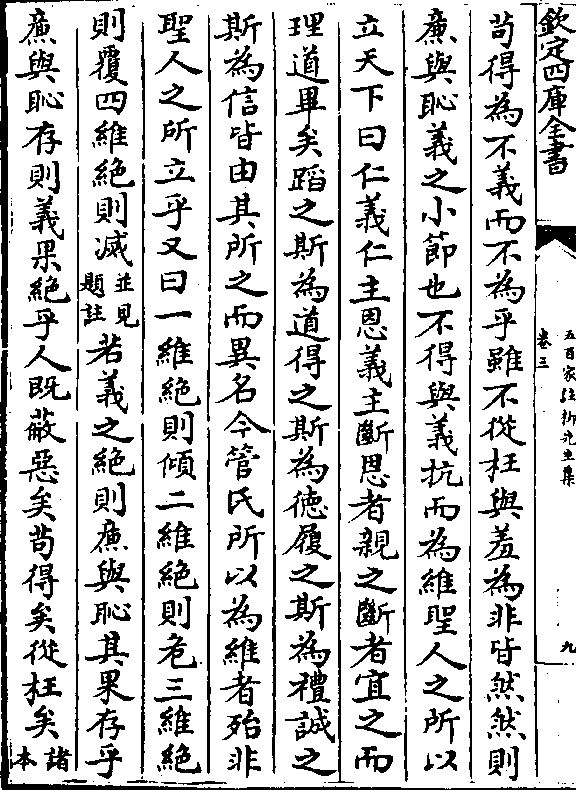 欽定四庫全書
五百家注柳先生集
卷三
九
苟得為不義而不為乎雖不從枉與羞為非皆然然則
廉與恥義之小節也不得與義抗而為維聖人之所以
立天下曰仁義仁主恩義主斷恩者親之斷者宜之而
理道畢矣蹈之斯為道得之斯為德履之斯為禮誠之
斯為信皆由其所之而異名今管氏所以為維者殆非
聖人之所立乎又曰一維絶則傾二維絶則危三維絶
則覆四維絶則滅並見題註若義之絶則廉與恥其果存乎
廉與恥存則義果絶乎人既蔽惡矣苟得矣從枉矣諸本